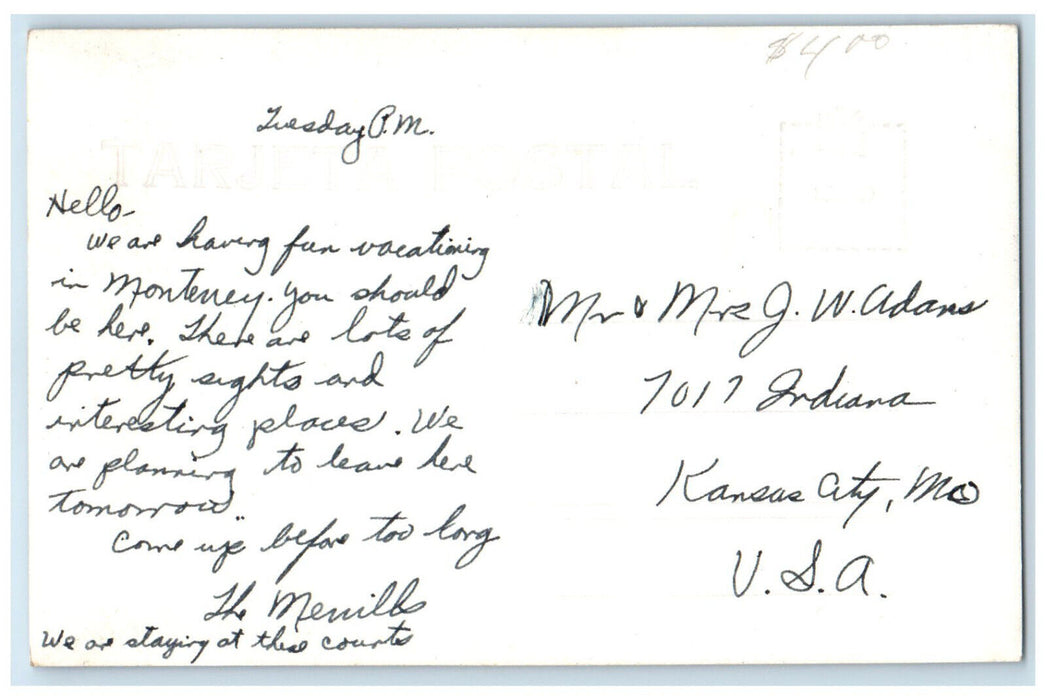 $4.00
Tuesday P.M.
TARJETA POSTAL
Hello-
We are having fun vacationing
in Monterrey. You should
be here. There are lots of
pretty sights and
interesting places. We
are planning to leave here
tomorrow.
Come up before too long
The Merrills
We are staying at these courts
Mr & Mrs J. W. Adams
7017 Indiana
Kansas City, Mo
U.S.A.